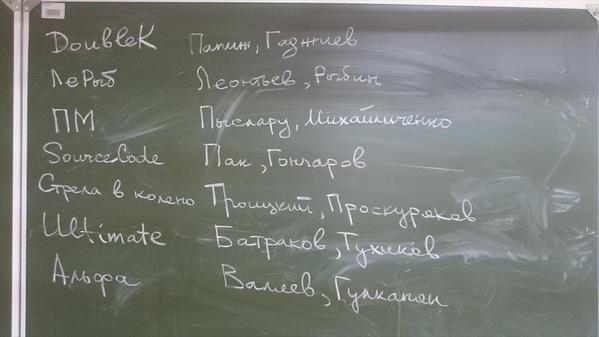 DoubleK Папин, Гаджиев
ЛеРыб Леонтьев, Рыбин
ПМ Пыслару, Михайличенко
SourceCode Пак, Гончаров
Стрела в колено Троицкий, Проскуряков
Ultimate Батраков, Тухиков
Альфа Валеев,